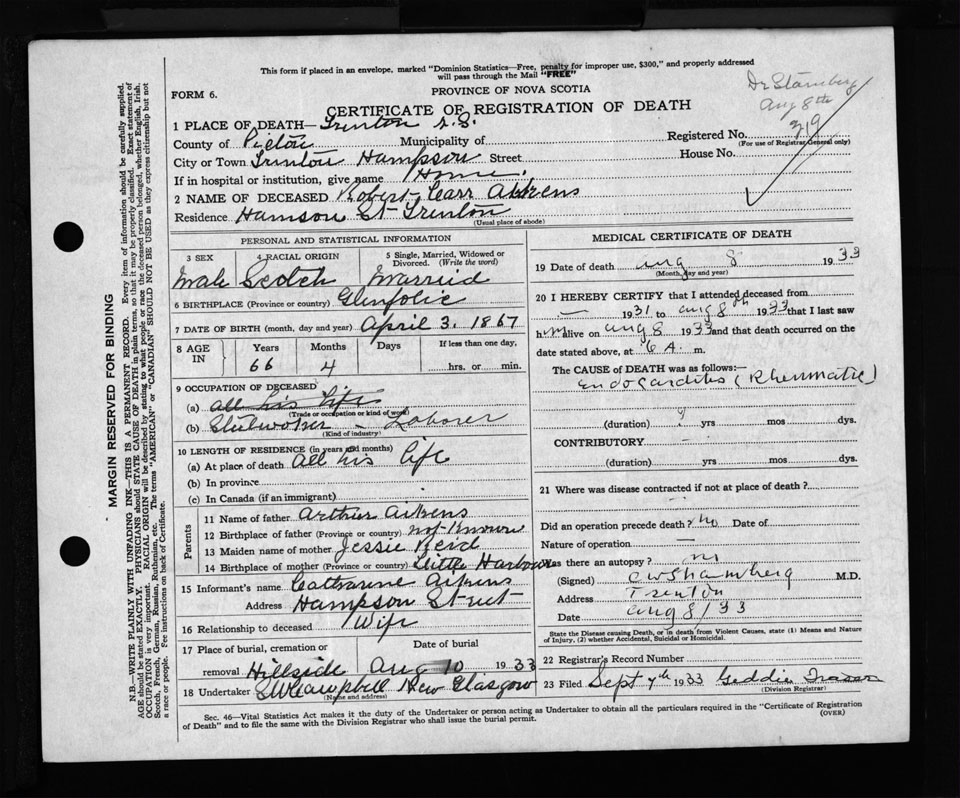 This form if placed in an envelope, marked "Dominion Statistics—Free, penalty for improper use, $300," and properly addressed
will pass through the Mail "FREE"
FORM 6.
PROVINCE OF NOVA SCOTIA
CERTIFICATE OF REGISTRATION OF DEATH
Aug 8th
319
1 PLACE OF DEATH— Trenton N.S.
County of Pictou Municipality of
Registered No.
(For use of Registrar General only)
City or Town Trenton Hampson Street
House No.
If in hospital or institution, give name Home
2 NAME OF DECEASED Robert Carr Aikens
Residence Hamson St Trenton
(Usual place of abode)
MARGIN RESERVED FOR BINDING
N.B.—WRITE PLAINLY WITH UNFADING INK—THIS IS A PERMANENT RECORD. Every item of information should be carefully supplied.
AGE should be stated EXACTLY. PHYSICIANS should STATE CAUSE OF DEATH in plain terms, so that it may be properly classified. Exact statement of
OCCUPATION is very important. RACIAL ORIGIN will be described by stating to what people or race the deceased person belonged, whether English, Irish,
Scotch, French, German, Russian, Ruthenian, etc. The terms "AMERICAN" or "CANADIAN" SHOULD NOT BE USED as they express citizenship but not
a race or people. Fee instructions on back of Certificate.
PERSONAL AND STATISTICAL INFORMATION
3 SEX
4 RACIAL ORIGIN
5 Single, Married, Widowed or
Divorced. (Write the word)
Male Scotch Married
6 BIRTHPLACE (Province or country)
7 DATE OF BIRTH (month, day and year) April 3. 1867
8 AGE
IN
Years Months Days If less than one day,
66 4 hrs. or min.
9 OCCUPATION OF DECEASED
(a) All his life
(Trade or occupation or kind of work)
(b) Steelworker - Laborer
(Kind of industry)
10 LENGTH OF RESIDENCE (in years and months)
(a) At place of death All his life
(b) In province
(c) In Canada (if an immigrant)
Parents
11 Name of father Arthur Aikens
12 Birthplace of father (Province or country) not known
13 Maiden name of mother Jessie Reid
14 Birthplace of mother (Province or country) Little Harbour
15 Informant's name Catharine Aikens
Address Hampson Street
16 Relationship to deceased Wife
17 Place of burial, cremation or Date of burial
removal Hillside Aug 10 1933
18 Undertaker Campbell New Glasgow
(Name and address)
MEDICAL CERTIFICATE OF DEATH
19 Date of death Aug 8 1933
(Month, day and year)
20 I HEREBY CERTIFY that I attended deceased from
— 1931 to Aug 8th 1933 that I last saw
him alive on Aug 8 1933 and that death occurred on the
date stated above, at 6 A. m.
The CAUSE OF DEATH was as follows:—
Endocarditis (Rheumatic)
(duration) ? yrs mos dys.
CONTRIBUTORY —
(duration) yrs mos dys.
21 Where was disease contracted if not at place of death?
Did an operation precede death? No Date of
Nature of operation —
Was there an autopsy? no
(Signed) M.D.
Address Trenton
Date Aug 8/33
State the Disease causing Death, or in death from Violent Causes, state (1) Means and Nature
of Injury, (2) whether Accidental, Suicidal or Homicidal.
22 Registrar's Record Number
23 Filed Sept 7th 1933 Geddie Fraser
(Division Registrar)
Sec. 46—Vital Statistics Act makes it the duty of the Undertaker or person acting as Undertaker to obtain all the particulars required in the "Certificate of Registration
of Death" and to file the same with the Division Registrar who shall issue the burial permit.
(OVER)